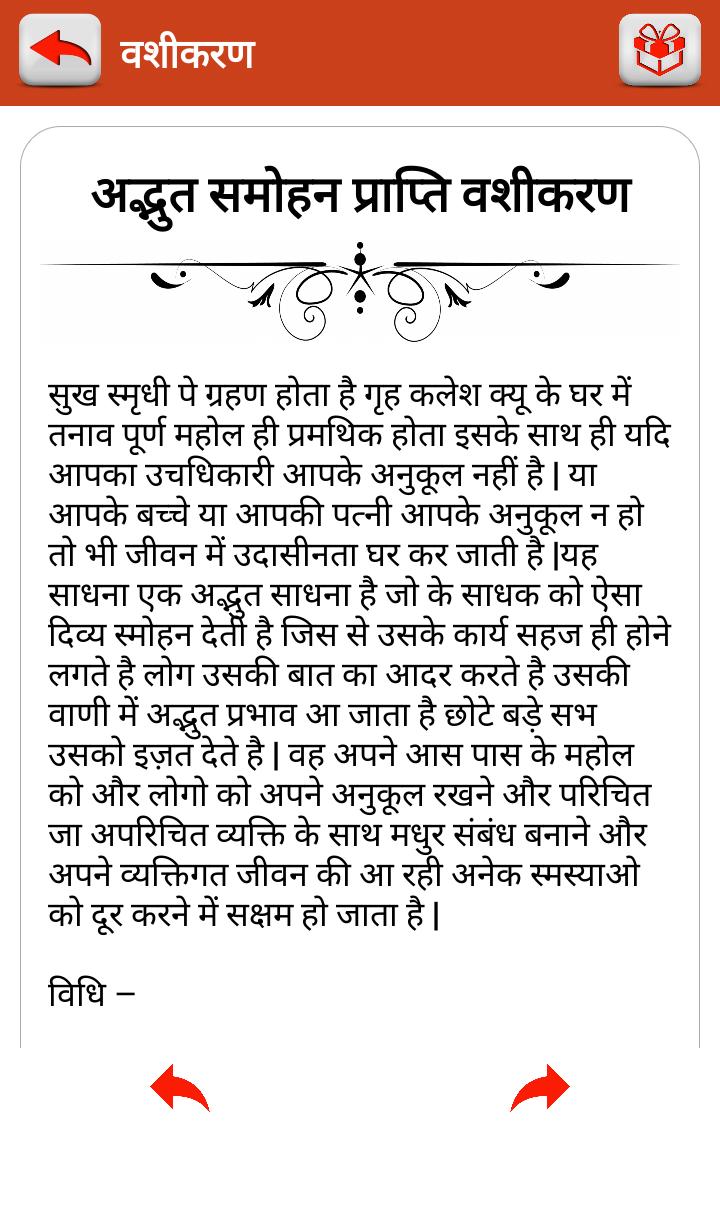 वशीकरण
अद्भुत समोहन प्राप्ति वशीकरण
सुख स्मृधी पे ग्रहण होता है गृह कलेश क्यू के घर में
तनाव पूर्ण महोल ही प्रमथिक होता इसके साथ ही यदि
आपका उचधिकारी आपके अनुकूल नहीं है | या
आपके बच्चे या आपकी पत्नी आपके अनुकूल न हो
तो भी जीवन में उदासीनता घर कर जाती है |यह
साधना एक अद्भुत साधना है जो के साधक को ऐसा
दिव्य स्मोहन देती है जिस से उसके कार्य सहज ही होने
लगते है लोग उसकी बात का आदर करते है उसकी
वाणी में अद्भुत प्रभाव आ जाता है छोटे बड़े सभ
उसको इज़त देते है | वह अपने आस पास के महोल
को और लोगो को अपने अनुकूल रखने और परिचित
जा अपरिचित व्यक्ति के साथ मधुर संबंध बनाने और
अपने व्यक्तिगत जीवन की आ रही अनेक स्मस्याओ
को दूर करने में सक्षम हो जाता है |
विधि –